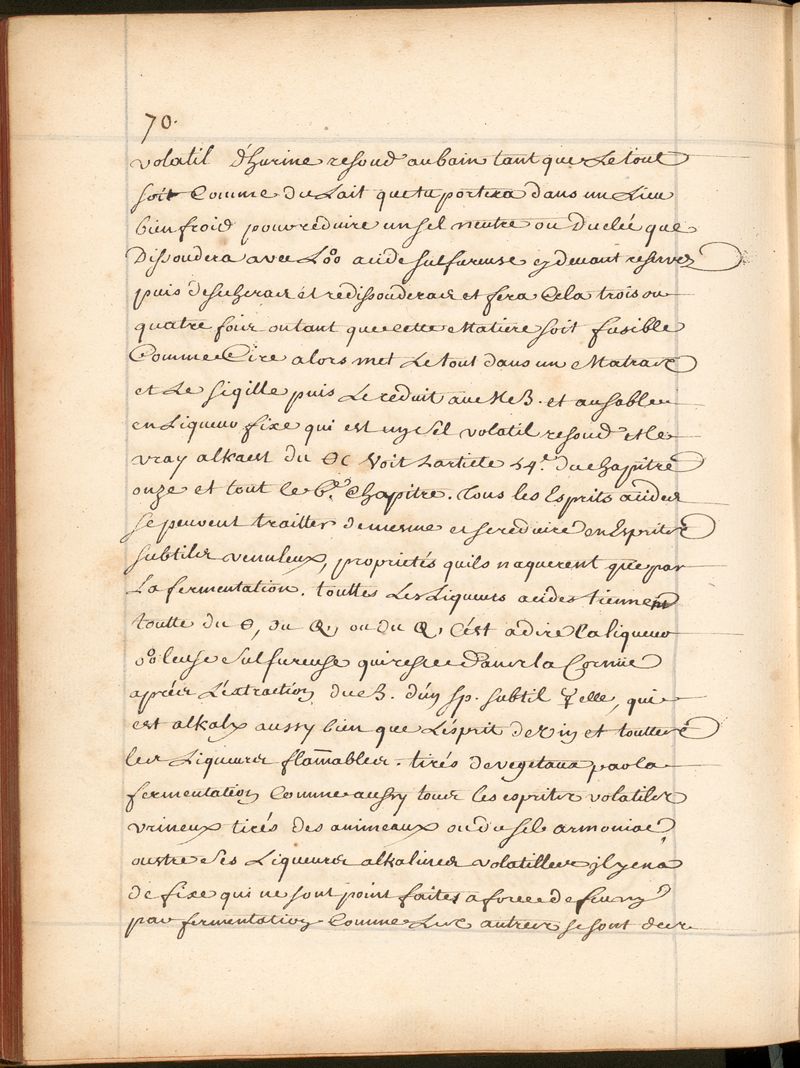 70.
volatil d'hurine resoud au bain tant que le tout
soit Comme du Lait que tu portera dans un Lieu
bien froid pour reduire un sel neutre ou Duelé que
Dissoudera avec L'oo acide sulfureuse cy devant reservez
puis desechera et redissouderas et fera Cela trois ou
quatre fois ou tant que cette Matiere soit fusible
Comme Cire alors met Le tout dans un Matras
et Le sigille puis Le reduit au B. et au sable
en Liqueur fixe qui est ny sel volatil resoud et le
vray alkaest du Voit L'article 54e. du Chapitre
onze et tout le 6e. Chapitre. Tous les Esprits acides
se peuvent traitter de mesme et se reduire en Esprits
subtiles venuleux, proprietés quils n'aquerent que par
La fermentation. touttes Les Liqueurs acides tiennent
toutte du ϴ, du ou du C'est a dire La liqueur
oleuse sulfureuse qui reste dans la Cornüe
aprés L'extraction du B. d'un sp. subtil ☿elle, qui
est alkaly aussy bien que L'esprit de Vin et touttes
les Liqueurs flam̄ables. tirés de vegetaux par la
fermentation Comme aussy tous les esprits volatiles
vrineux tirés des animeaux ou du sel armoniac
oustre Ses Liqueurs alkalines volatilles il y en a
de fixe qui ne sont point faites a force de feu ny
par fermentation Comme Les autres se sont des